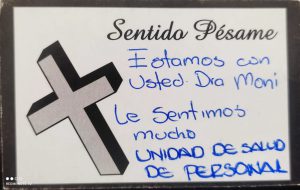 Sentido Pésame
Estamos con
Usted Dra Moni
Le Sentimos
mucho
UNIDAD DE SALUD
DE PERSONAL